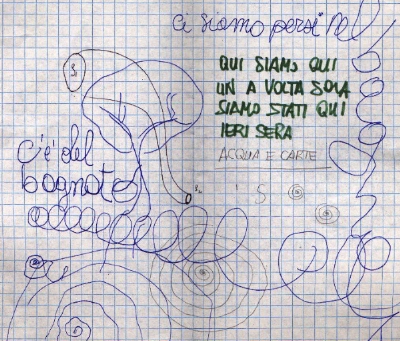 ci siamo persi nel
QUI SIAMO QUI
UN A VOLTA SOLA
SIAMO STATI QUI
IERI SERA
ACQUA E CARTE
c'è del
bagnato
5